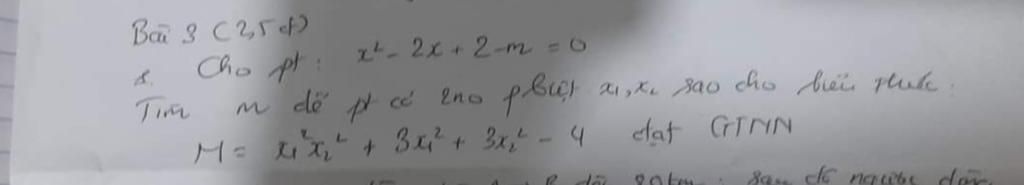 Bài 3 (2,5đ)
Cho pt: x² - 2x + 2 - m = 0
Tìm m để pt có 2no pbiệt x₁, x₂ sao cho biểu thức:
M = x₁²x₂² + 3x₁² + 3x₂² - 4 đạt GTNN